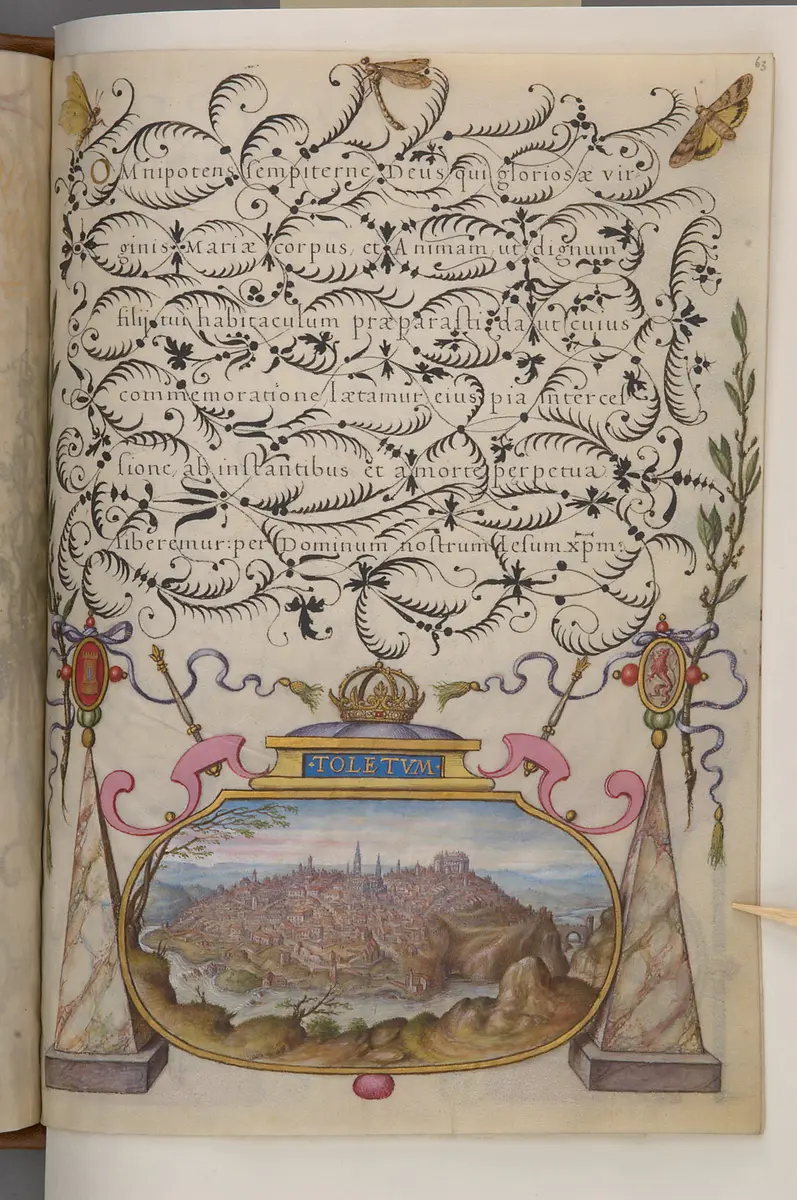 63
OMnipotens sempiterne Deus qui gloriosæ vir-
ginis Mariæ corpus, et Animam, ut dignum
filij tui habitaculum præpararasti: da ut cuius
commemoratione lætamur, eius pia interces-
sione, ab instantibus et a morte perpetua
liberemur: per Dominum nostrum Iesum xp̄m:
·TOLETVM·